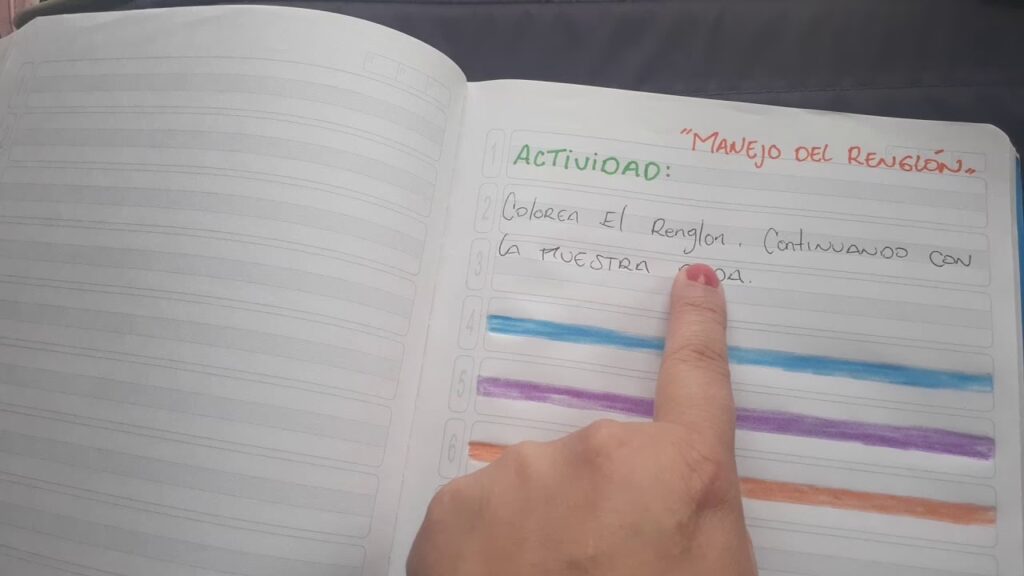 "MANEJO DEL RENGLÓN"
ACTIVIDAD:
COLOREA El Renglon. CONTINUANDO CON
LA MUESTRA
1
2
3
4
5
6